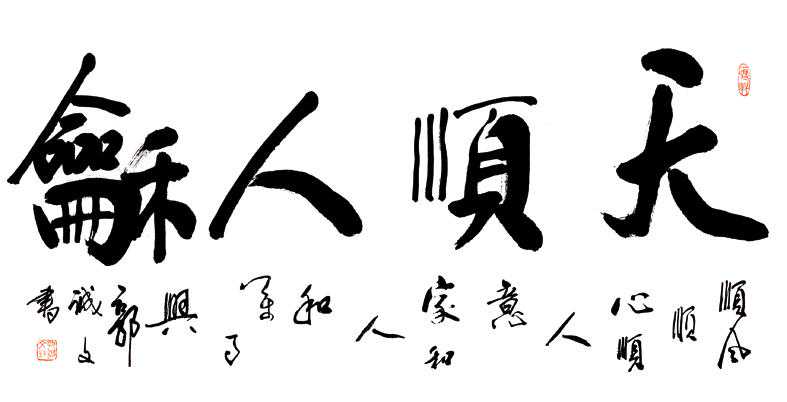 天順人龢
順風順心順人意家和人和萬事興郭誠文書